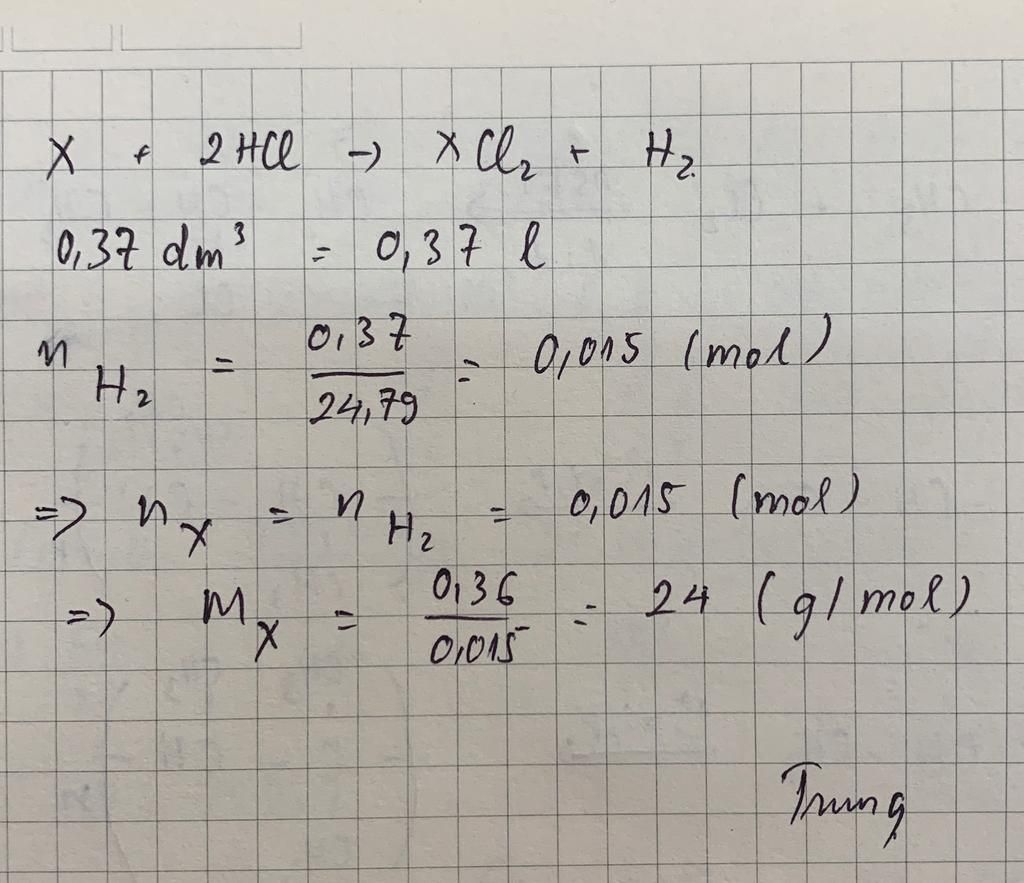 X + 2HCl → XCl₂ + H₂
0,37 dm³ = 0,37 l
n H₂ = 0,37/24,79 = 0,015 (mol)
=> n X = n H₂ = 0,015 (mol)
=> M X = 0,36/0,015 = 24 (g/mol)
Trung